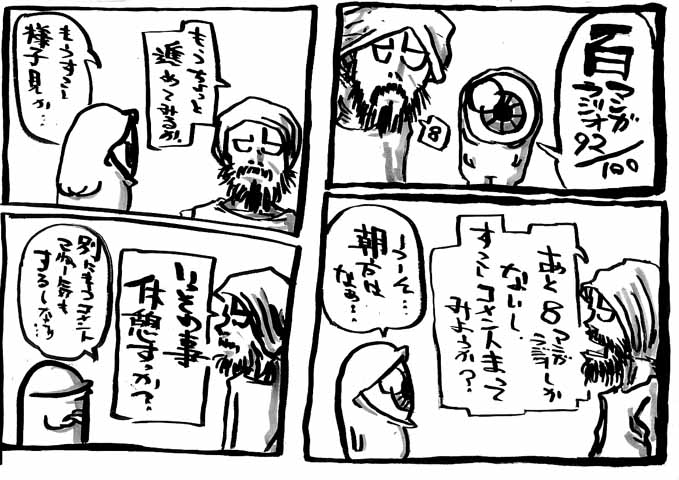 百
マンガ
ラジオ
92/100
8
あと8マンガラジオしか
ないし、
すこしコメントまって
みようか?
うーん…
朝方は
なぁ…
もうちょっと
進めてみるか
もうすこし
様子見か…
いっその事
休憩すっか?
別にまつコメント
こねー気も
するしなぁ…